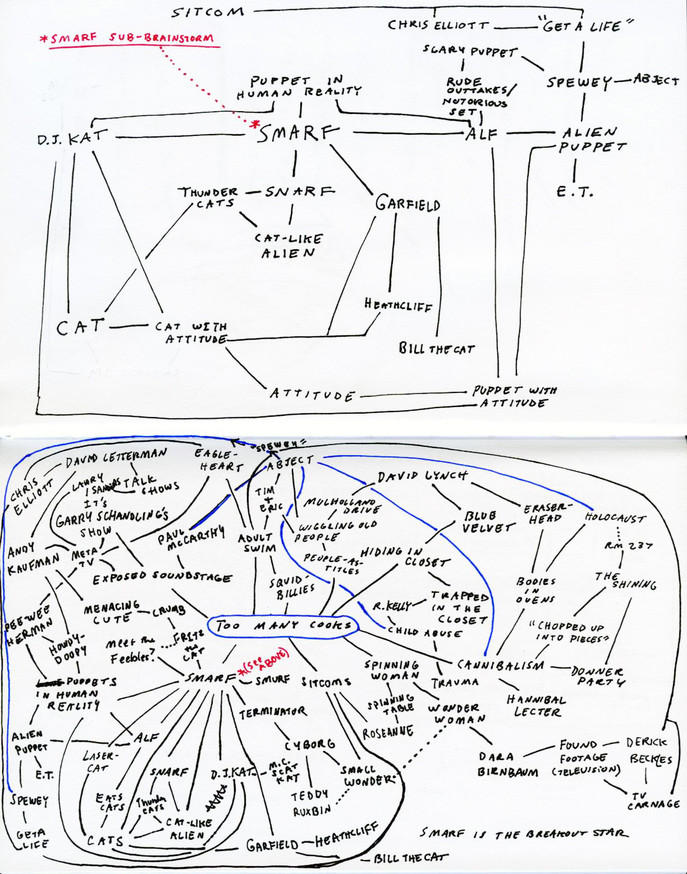 SITCOM
CHRIS ELLIOTT
"GET A LIFE"
*SMARF SUB-BRAINSTORM
SCARY PUPPET
PUPPET IN
HUMAN REALITY
RUDE
OUTTAKES/
NOTORIOUS
SET
SPEWEY
ABJECT
D.J. KAT
*SMARF
ALF
ALIEN
PUPPET
E.T.
THUNDER
CATS
SNARF
GARFIELD
CAT-LIKE
ALIEN
HEATHCLIFF
CAT
CAT WITH
ATTITUDE
BILL THE CAT
ATTITUDE
PUPPET WITH
ATTITUDE
DAVID LETTERMAN
EAGLE-
HEART
"SPEWEY"
ABJECT
CHRIS
ELLIOTT
LARRY
SANDERS
TALK
SHOWS
IT'S
GARRY SCHANDLING'S
SHOW
TIM
+
ERIC
DAVID LYNCH
MULHOLLAND
DRIVE
WIGGLING OLD
PEOPLE
BLUE
VELVET
ERASER-
HEAD
HOLOCAUST
ANDY
KAUFMAN
META
TV
PAUL
MCCARTHY
ADULT
SWIM
PEOPLE-AS-
TITLES
HIDING IN
CLOSET
RM 237
EXPOSED SOUNDSTAGE
SQUID-
BILLIES
BODIES
IN
OVENS
THE
SHINING
PEEWEE
HERMAN
MENACING
CUTE
CRUMB
TOO MANY COOKS
R. KELLY
TRAPPED
IN THE
CLOSET
"CHOPPED UP
INTO PIECES"
HOWDY-
DOODY
MEET THE
FEEBLES?
FRITZ
THE
CAT
CHILD ABUSE
PUPPETS
IN HUMAN
REALITY
SMARF
*(SEE
ABOVE)
SMURF
SITCOMS
SPINNING
WOMAN
TRAUMA
CANNIBALISM
DONNER
PARTY
HANNIBAL
LECTER
TERMINATOR
SPINNING
TABLE
ROSEANNE
WONDER
WOMAN
ALIEN
PUPPET
ALF
E.T.
LASER-
CAT
SNARF
D.J. KAT
M.C.
SCAT
KAT
CYBORG
SMALL
WONDER
DARA
BIRNBAUM
FOUND
FOOTAGE
(TELEVISION)
DERICK
BECKLES
SPEWEY
EATS
CATS
THUNDER
CATS
CAT-LIKE
ALIEN
TEDDY
RUXBIN
TV
CARNAGE
GET A
LIFE
CATS
GARFIELD
HEATHCLIFF
BILL THE CAT
SMARF IS THE BREAKOUT STAR